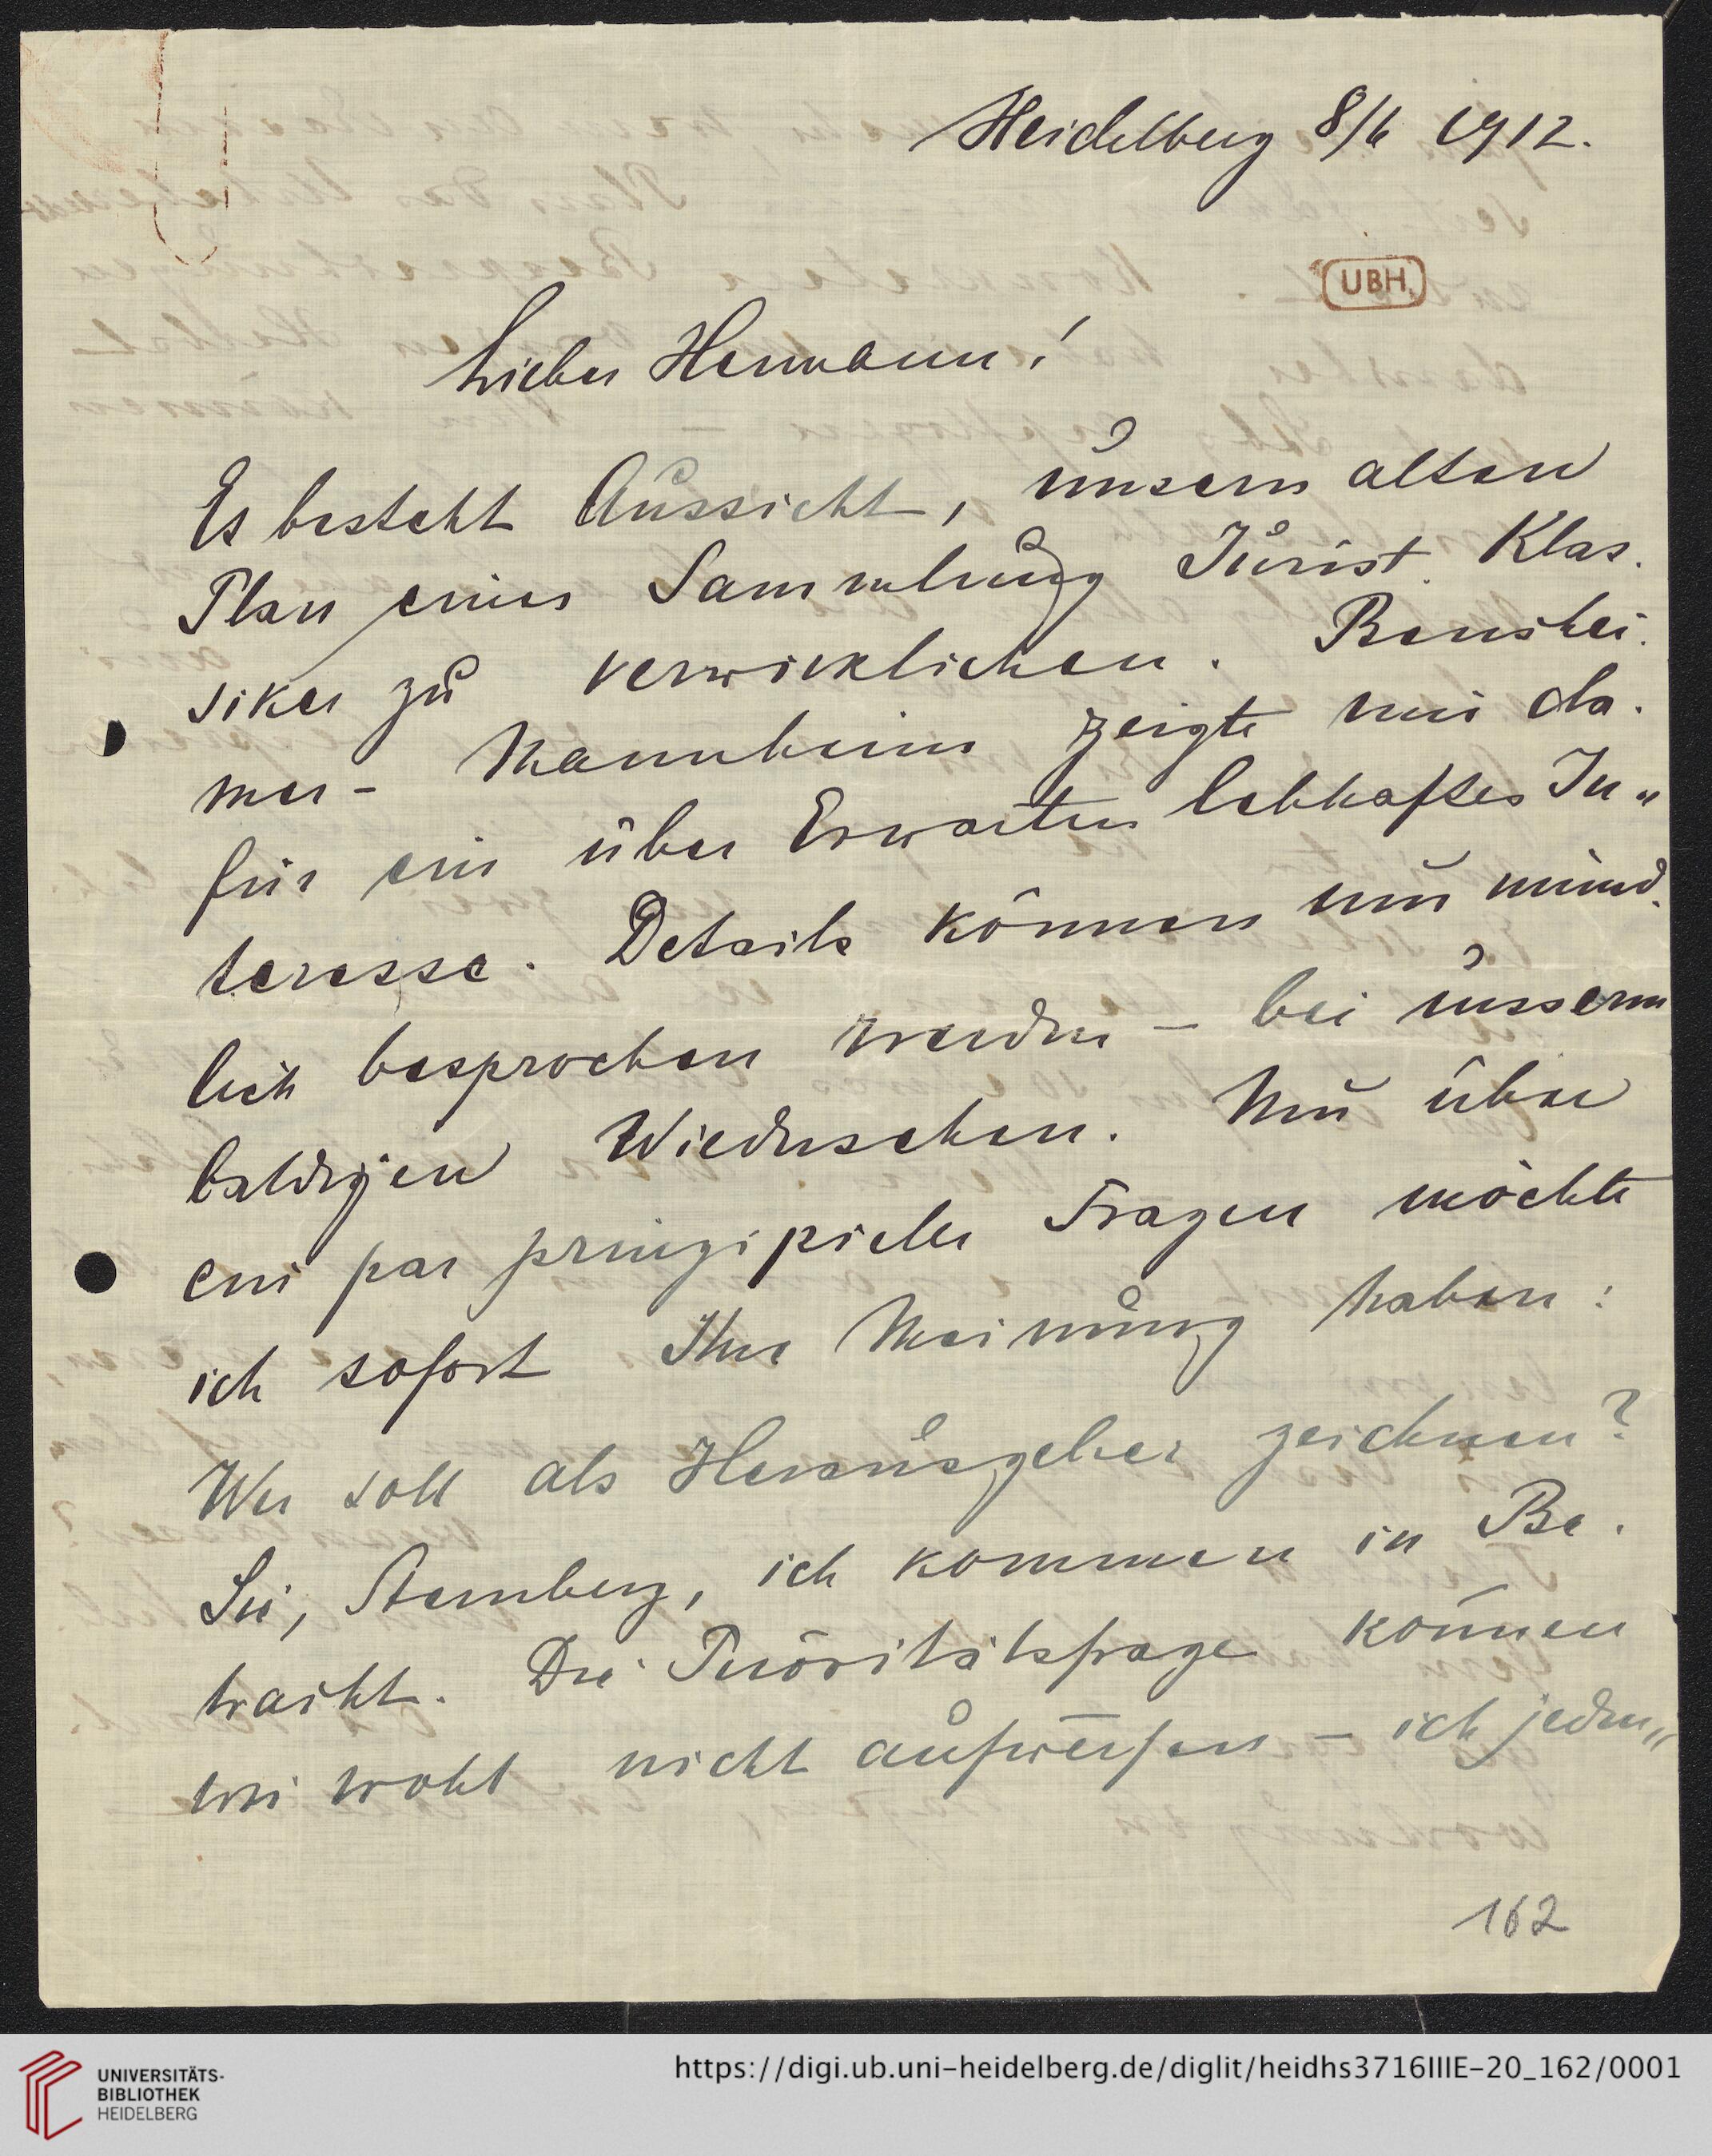 Heidelberg 8/6 1912.
UBH.
Lieber Hermann!
Es besteht Aussicht, unsern alten
Plan einer Sammlung Jurist. Klas-
siker zu verwirklichen. Benshei-
mer - Mannheim zeigte mir da-
für ein über Erwarten lebhaftes In-
teresse. Details können nur münd-
lich besprochen werden - bei unserm
baldigen Wiedersehen. Nur über
ein par prinzipielle Fragen möchte
ich sofort Ihre Meinung haben:
Wer soll als Herausgeber zeichnen?
Sie, Sternberg, ich kommen in Be-
tracht. Die Prioritätsfrage können
wir wohl nicht aufwerfen - ich jeden-
162
UNIVERSITÄTS-
BIBLIOTHEK
HEIDELBERG
https://digi.ub.uni-heidelberg.de/diglit/heidhs3716IIIE-20_162/0001